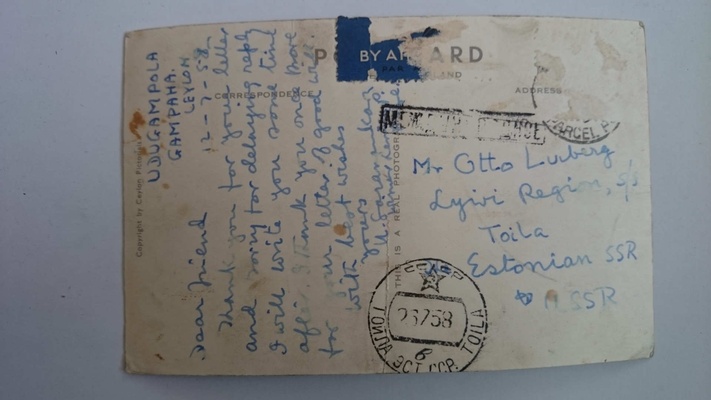 UDUGAMPOLA
GAMPAHA.
CEYLON
12-7-58
Dear friend
Thank you for your letter
and sorry for delaying reply
I will write you some time
after. I thank you once more
for your letter of good will.
with best wishes
yours
CORRESPONDENCE
ADDRESS
BY AIR
PAR
CARD
Copyright by Ceylon
THIS IS A REAL PHOTOGR
PARCEL P
Mr Otto Luberg
Lyivi Region, s/s
Toila
Estonian SSR
СССР
26758
в
ТОЙЛА ЭСТ. ССР. TOILA